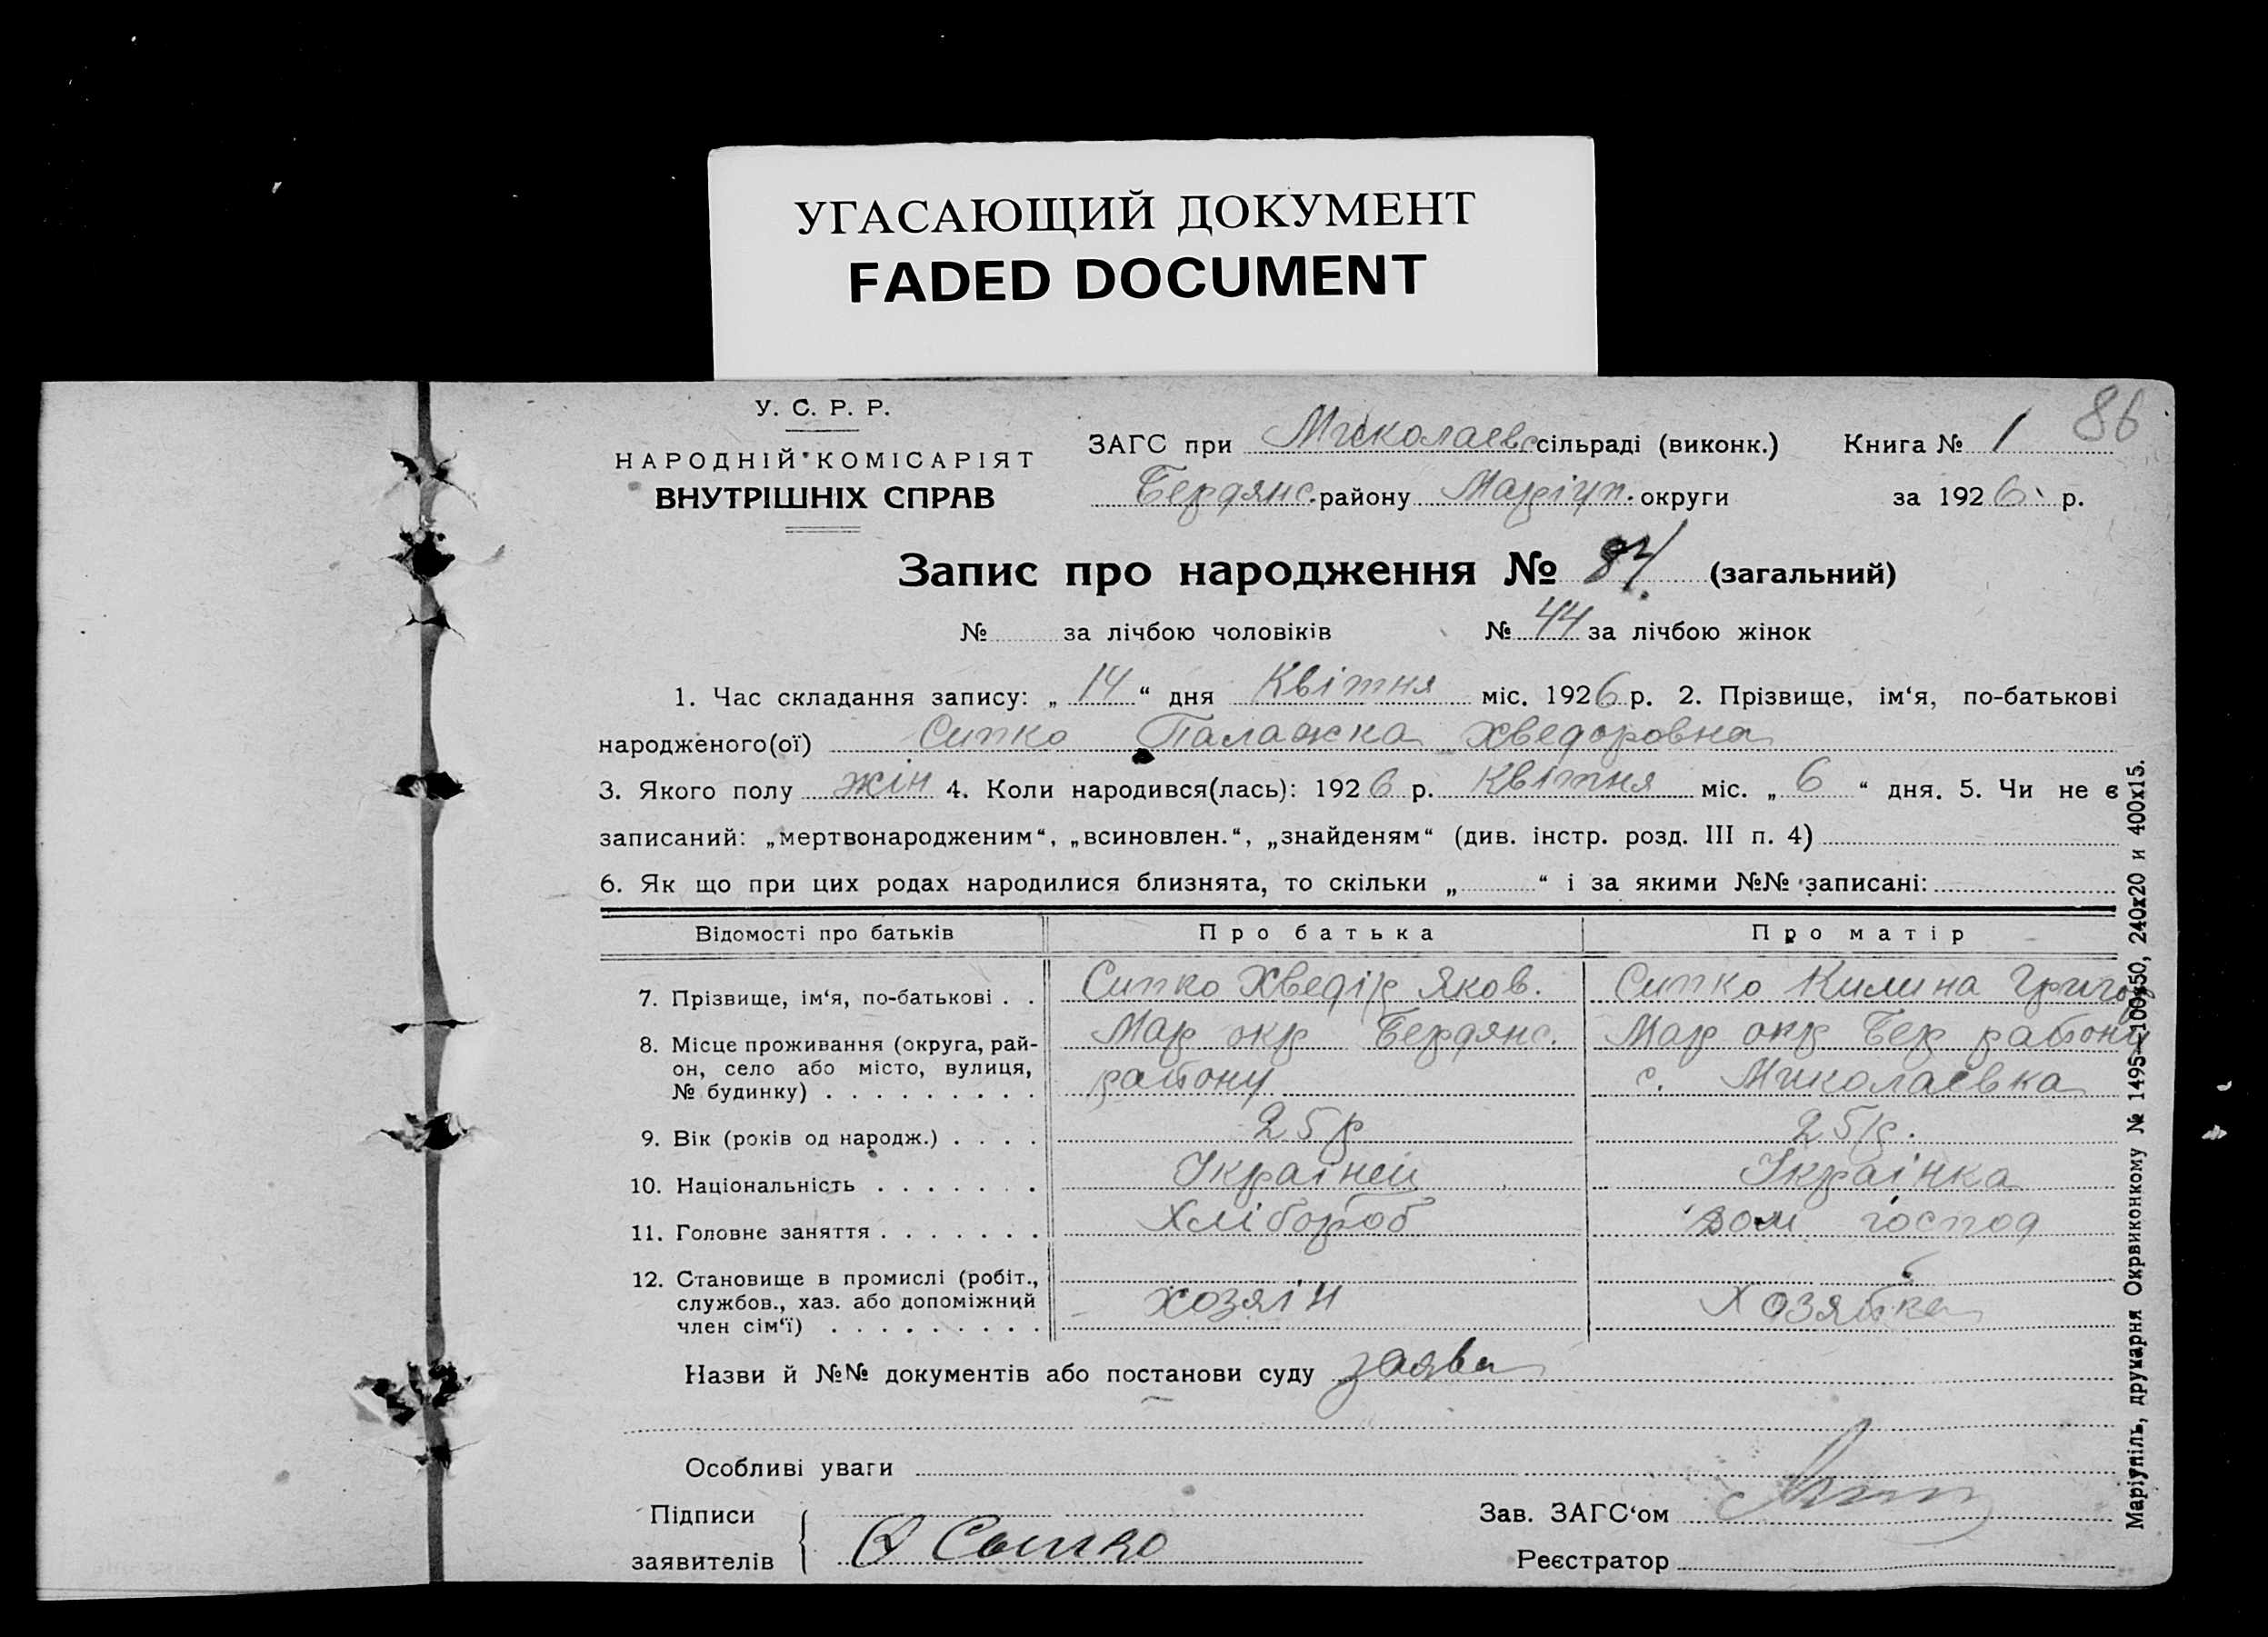 УГАСАЮЩИЙ ДОКУМЕНТ
FADED DOCUMENT
86
У. С. Р. Р.
НАРОДНІЙ КОМІСАРІЯТ
ВНУТРІШНІХ СПРАВ
ЗАГС при Миколаевс сільраді (виконк.) Книга № 1
Бердянс. району Маріуп. округи за 1926 р.
Запис про народження № 87 (загальний)
№ за лічбою чоловіків № 44 за лічбою жінок
1. Час складання запису: „14“ дня Квітня міс. 1926 р. 2. Прізвище, ім‘я, по-батькові
народженого(ої) Сипко Палажка Хведоровна
3. Якого полу жін 4. Коли народився(лась): 1926 р. Квітня міс. „6“ дня. 5. Чи не є
записаний: „мертвонародженим“, „всиновлен.“, „знайденям“ (див. інстр. розд. III п. 4)
6. Як що при цих родах народилися близнята, то скільки „ “ і за якими №№ записані:
Відомості про батьків Про батька Про матір
7. Прізвище, ім‘я, по-батькові . . Сипко Хведір Яков. Сипко Килина Григор
8. Місце проживання (округа, рай- Мар окр Бердянс. Мар окр Бер району
он, село або місто, вулиця, району с. Миколаевка
№ будинку) . . . . . . . . .
9. Вік (років од народж.) . . . . 25 р 25 р.
10. Національність . . . . . . . Украінец Украінка
11. Головне заняття . . . . . . . Хлібороб дом господ
12. Становище в промислі (робіт.,
службов., хаз. або допоміжний хозяін Хозяйка
член сім‘ї) . . . . . . . . .
Назви й №№ документів або постанови суду заява
Особливі уваги
Підписи
заявителів Сипко
Зав. ЗАГС‘ом
Реєстратор
Маріупіль, друкарня Окрвиконкому № 1495—100х50, 240х20 и 400х15.